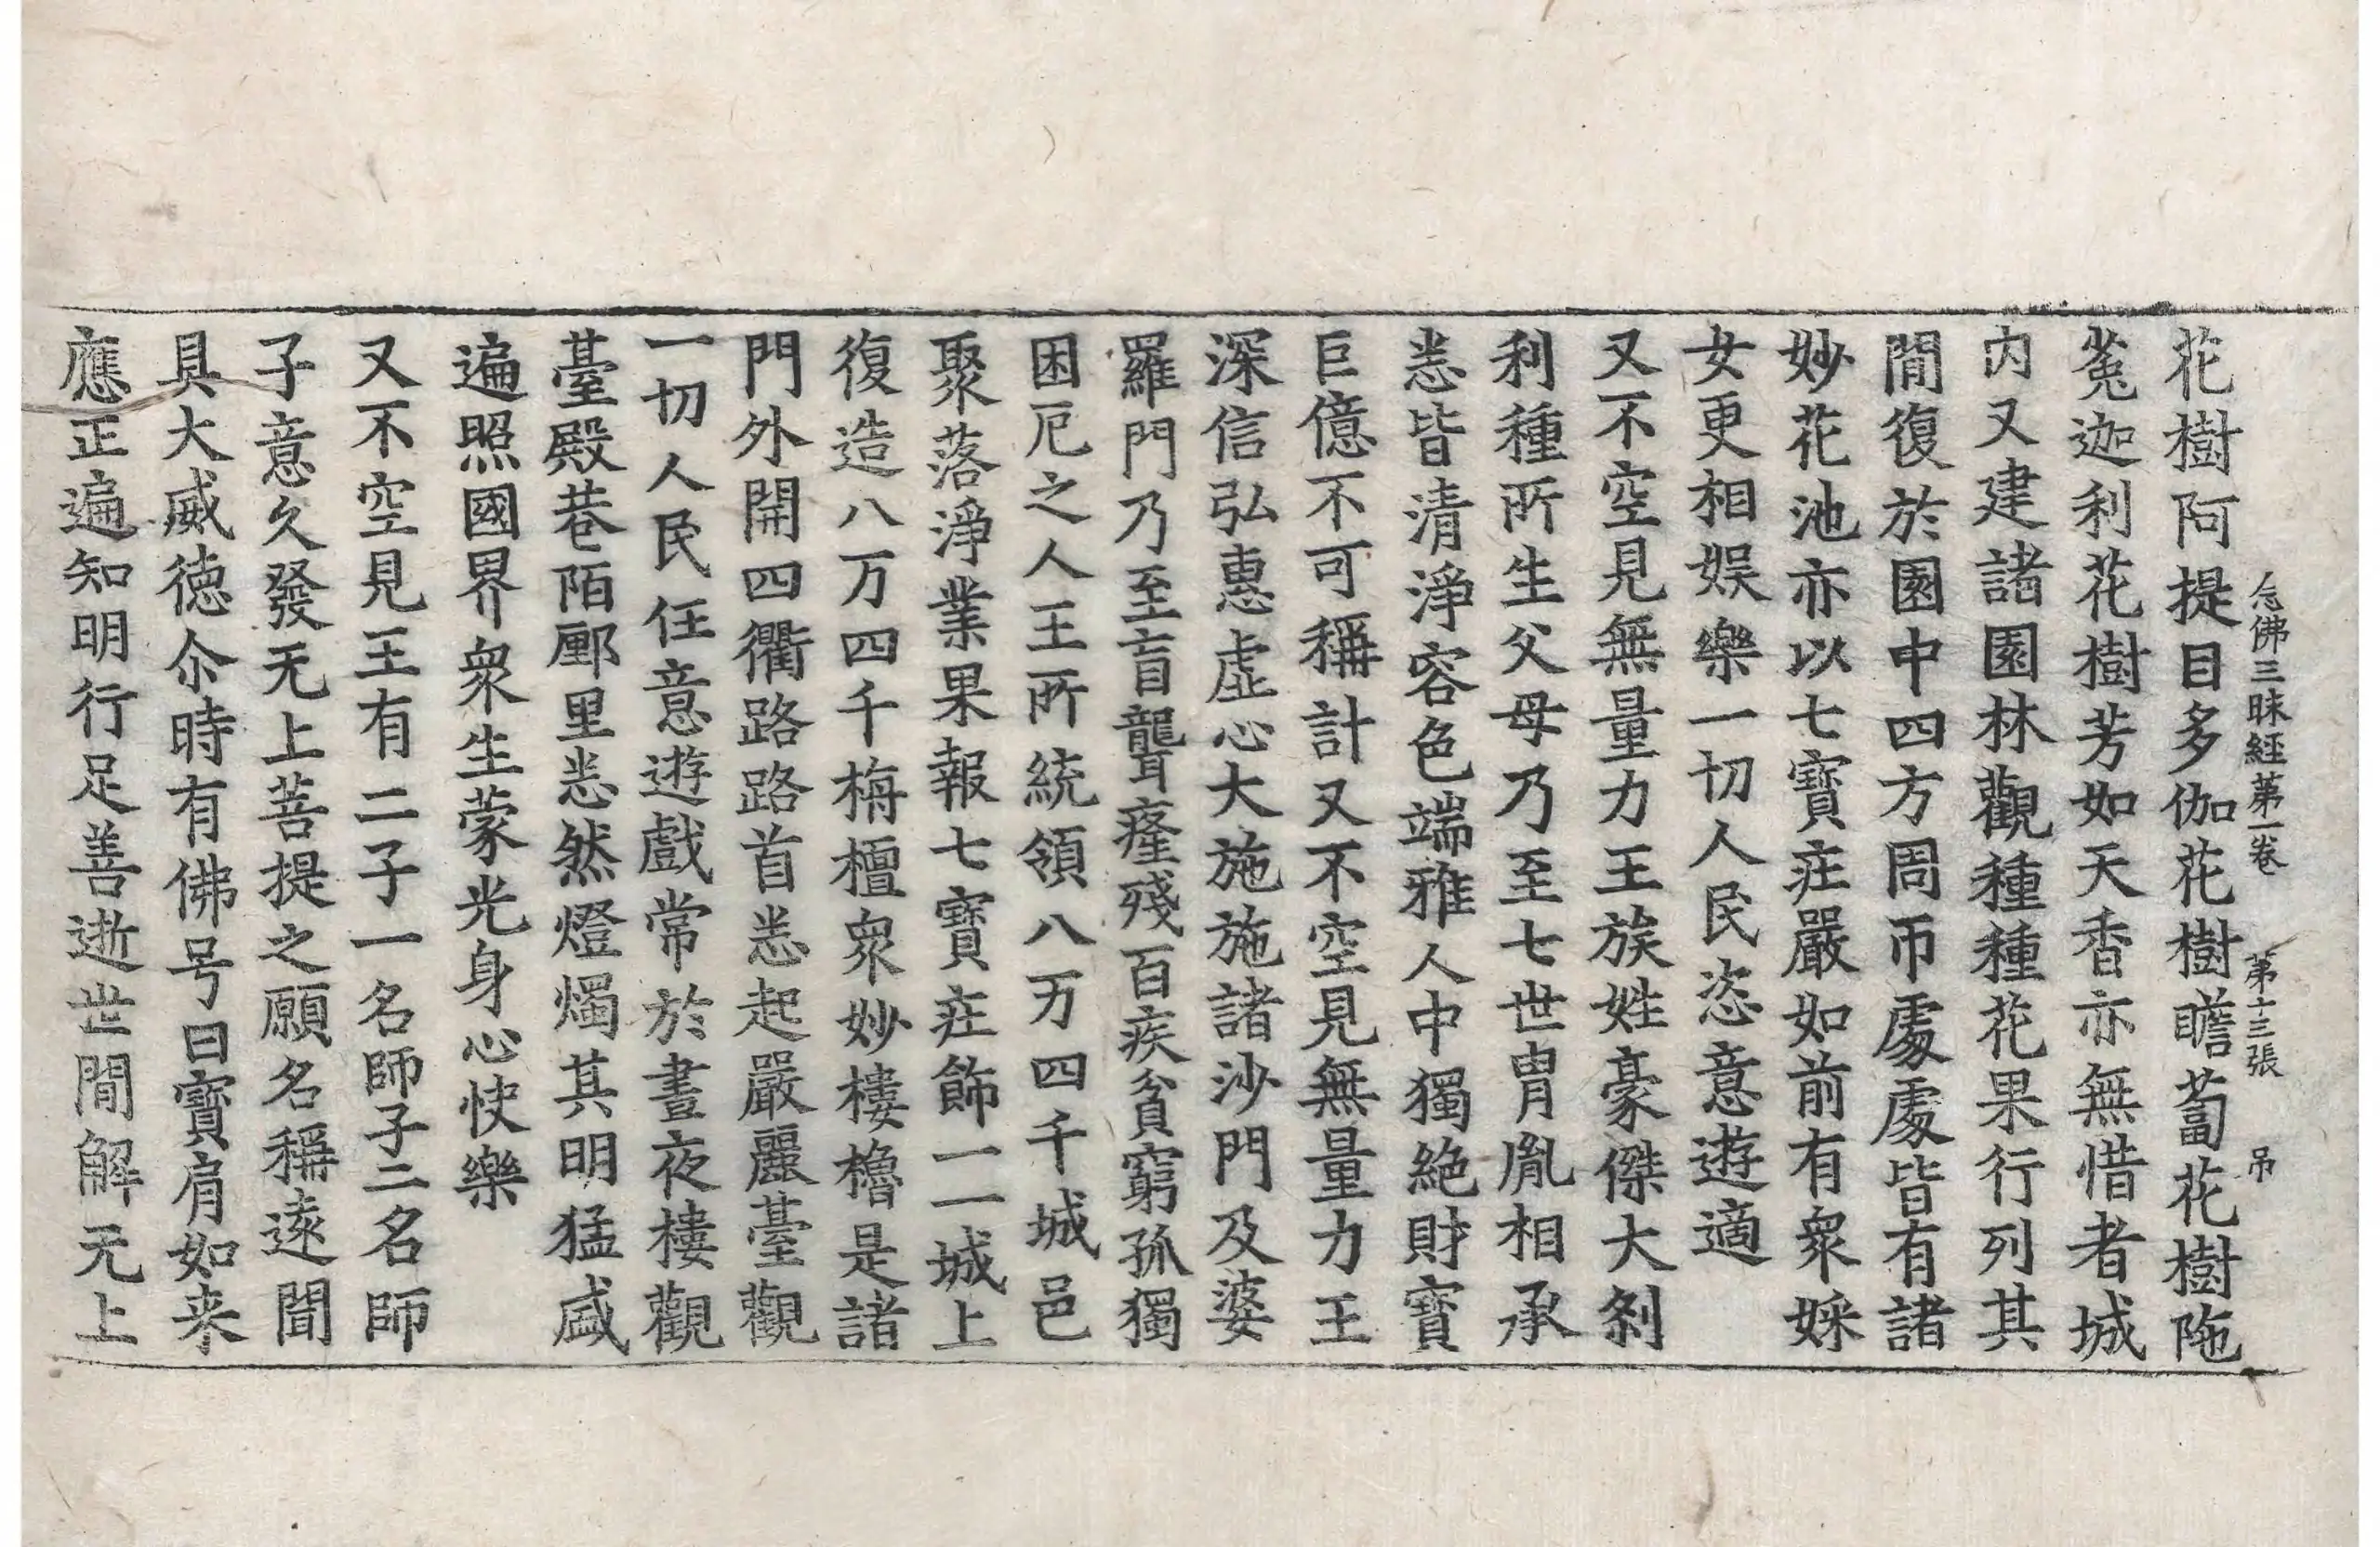 念佛三昧經第一卷 第十三張 弔
花樹阿提目多伽花樹瞻蔔花樹陁
菟迦利花樹芳如天香亦無惜者城
內又建諸園林觀種種花果行列其
閒復於園中四方周帀處處皆有諸
妙花池亦以七寶庄嚴如前有衆婇
女更相娛樂一切人民恣意遊適
又不空見無量力王族姓豪傑大剎
利種所生父母乃至七世胄胤相承
悉皆清淨容色端雅人中獨絕財寶
巨億不可稱計又不空見無量力王
深信弘惠虛心大施施諸沙門及婆
羅門乃至盲聾癃殘百疾貧窮孤獨
困厄之人王所統領八万四千城邑
聚落淨業果報七寶庄飾一一城上
復造八万四千栴檀衆妙樓櫓是諸
門外開四衢路路首悉起嚴麗臺觀
一切人民任意遊戲常於晝夜樓觀
臺殿巷陌鄽里悉然燈燭其明猛盛
遍照國界衆生蒙光身心快樂
又不空見王有二子一名師子二名師
子意久發无上菩提之願名稱遠聞
具大威德尒時有佛号曰寶肩如来
應正遍知明行足善逝世閒解无上